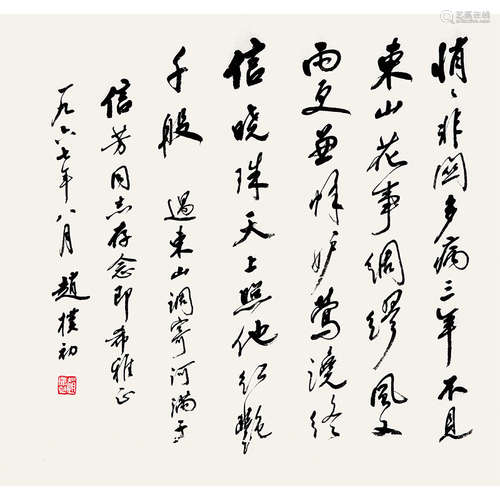 悄悄非關多病三年不見
東山花事綢繆風又
雨更兼情妒鶯澆終
信曉珠天上照他紅艷
千般 過東山調寄河滿子
信芳同志存念即希雅正
一九六七年八月 趙樸初